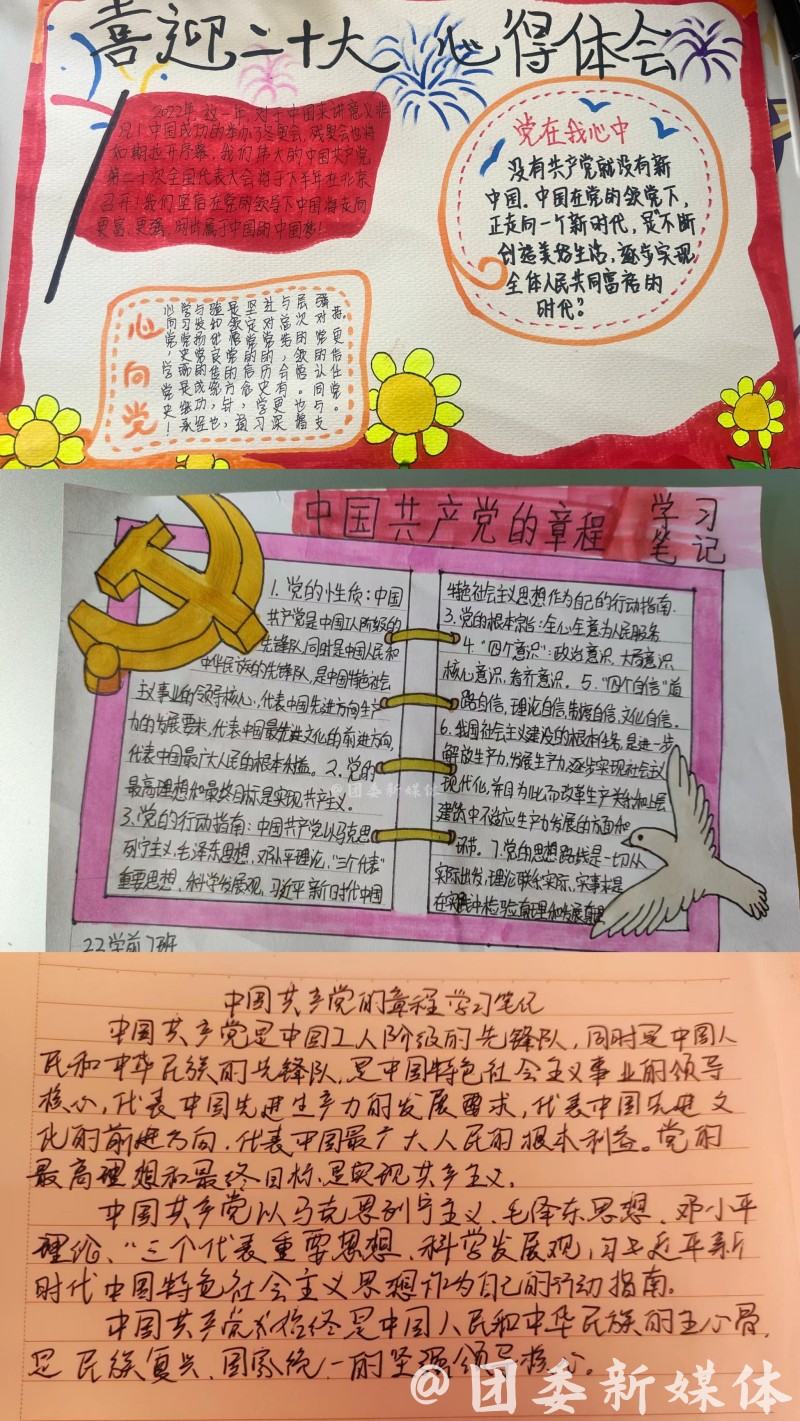 喜迎二十大 心得体会
2022年 这一年 对于中国来讲意义非
凡!中国成功的举办了冬奥会,残奥会也将
如期拉开序幕,我们伟大的中国共产党
第二十次全国代表大会将于下半年在北京
召开!我们坚信在党的领导下中国将走向
更富、更强,闭
属于中国的中国梦!
党在我心中
没有共产党就没有新
中国.中国在党的领党下,
正走向一个新时代,是"不断
创造美好生活,逐步实现
全体人民共同富裕的
时代?
心向党
中国共产党的章程 学习
笔记
1. 党的性质:中国
共产党是中国工人阶级的
先锋队,同时是中国人民和
中华民族的先锋队,是中国特色社会
主义事业的领导核心,代表中国先进方向生产
力的发展要求,代表中国最先进文化的前进方向,
代表中国最广大人民的根本利益。2.党的
最高理想和最终目标是实现共产主义。
3.党的行动指南:中国共产党以马克思
列宁主义,毛泽东思想,邓小平理论,"三个代表"
重要思想,科学发展观,习近平新时代中国
特色社会主义思想作为自己的行动指南.
3.党的根本宗旨:全心全意为人民服务
4."四个意识":政治意识、大局意识
核心意识,看齐意识。5."四个自信"道
路自信,理论自信,制度自信,文化自信。
6.我国社会主义建设的根本任务,是进一步
解放生产力,发展生产力,逐步实现社会主义
现代化,并且为此而改革生产关系和上层
建筑中不适应生产力发展的方面和
环节。7.党的思想路线是一切从
实际出发,理论联系实际,实事求是
在实践中检验真理和发展真理
@团委新媒体
22学前7班
中国共产党的章程学习笔记
中国共产党是中国工人阶级的先锋队,同时是中国人
民和中华民族的先锋队,是中国特色社会主义事业的领导
核心,代表中国先进生产力的发展要求,代表中国先进文
化的前进方向,代表中国最广大人民的根本利益。党的
最高理想和最终目标,是实现共产主义。
中国共产党以马克思列宁主义、毛泽东思想、邓小平
理论、"三个代表重要思想、科学发展观,习近平新
时代中国特色社会主义思想作为自己的行动指南。
中国共产党始终是中国人民和中华民族的主心骨,
是民族复兴、国家统一的坚强领导核心。
@团委新媒体